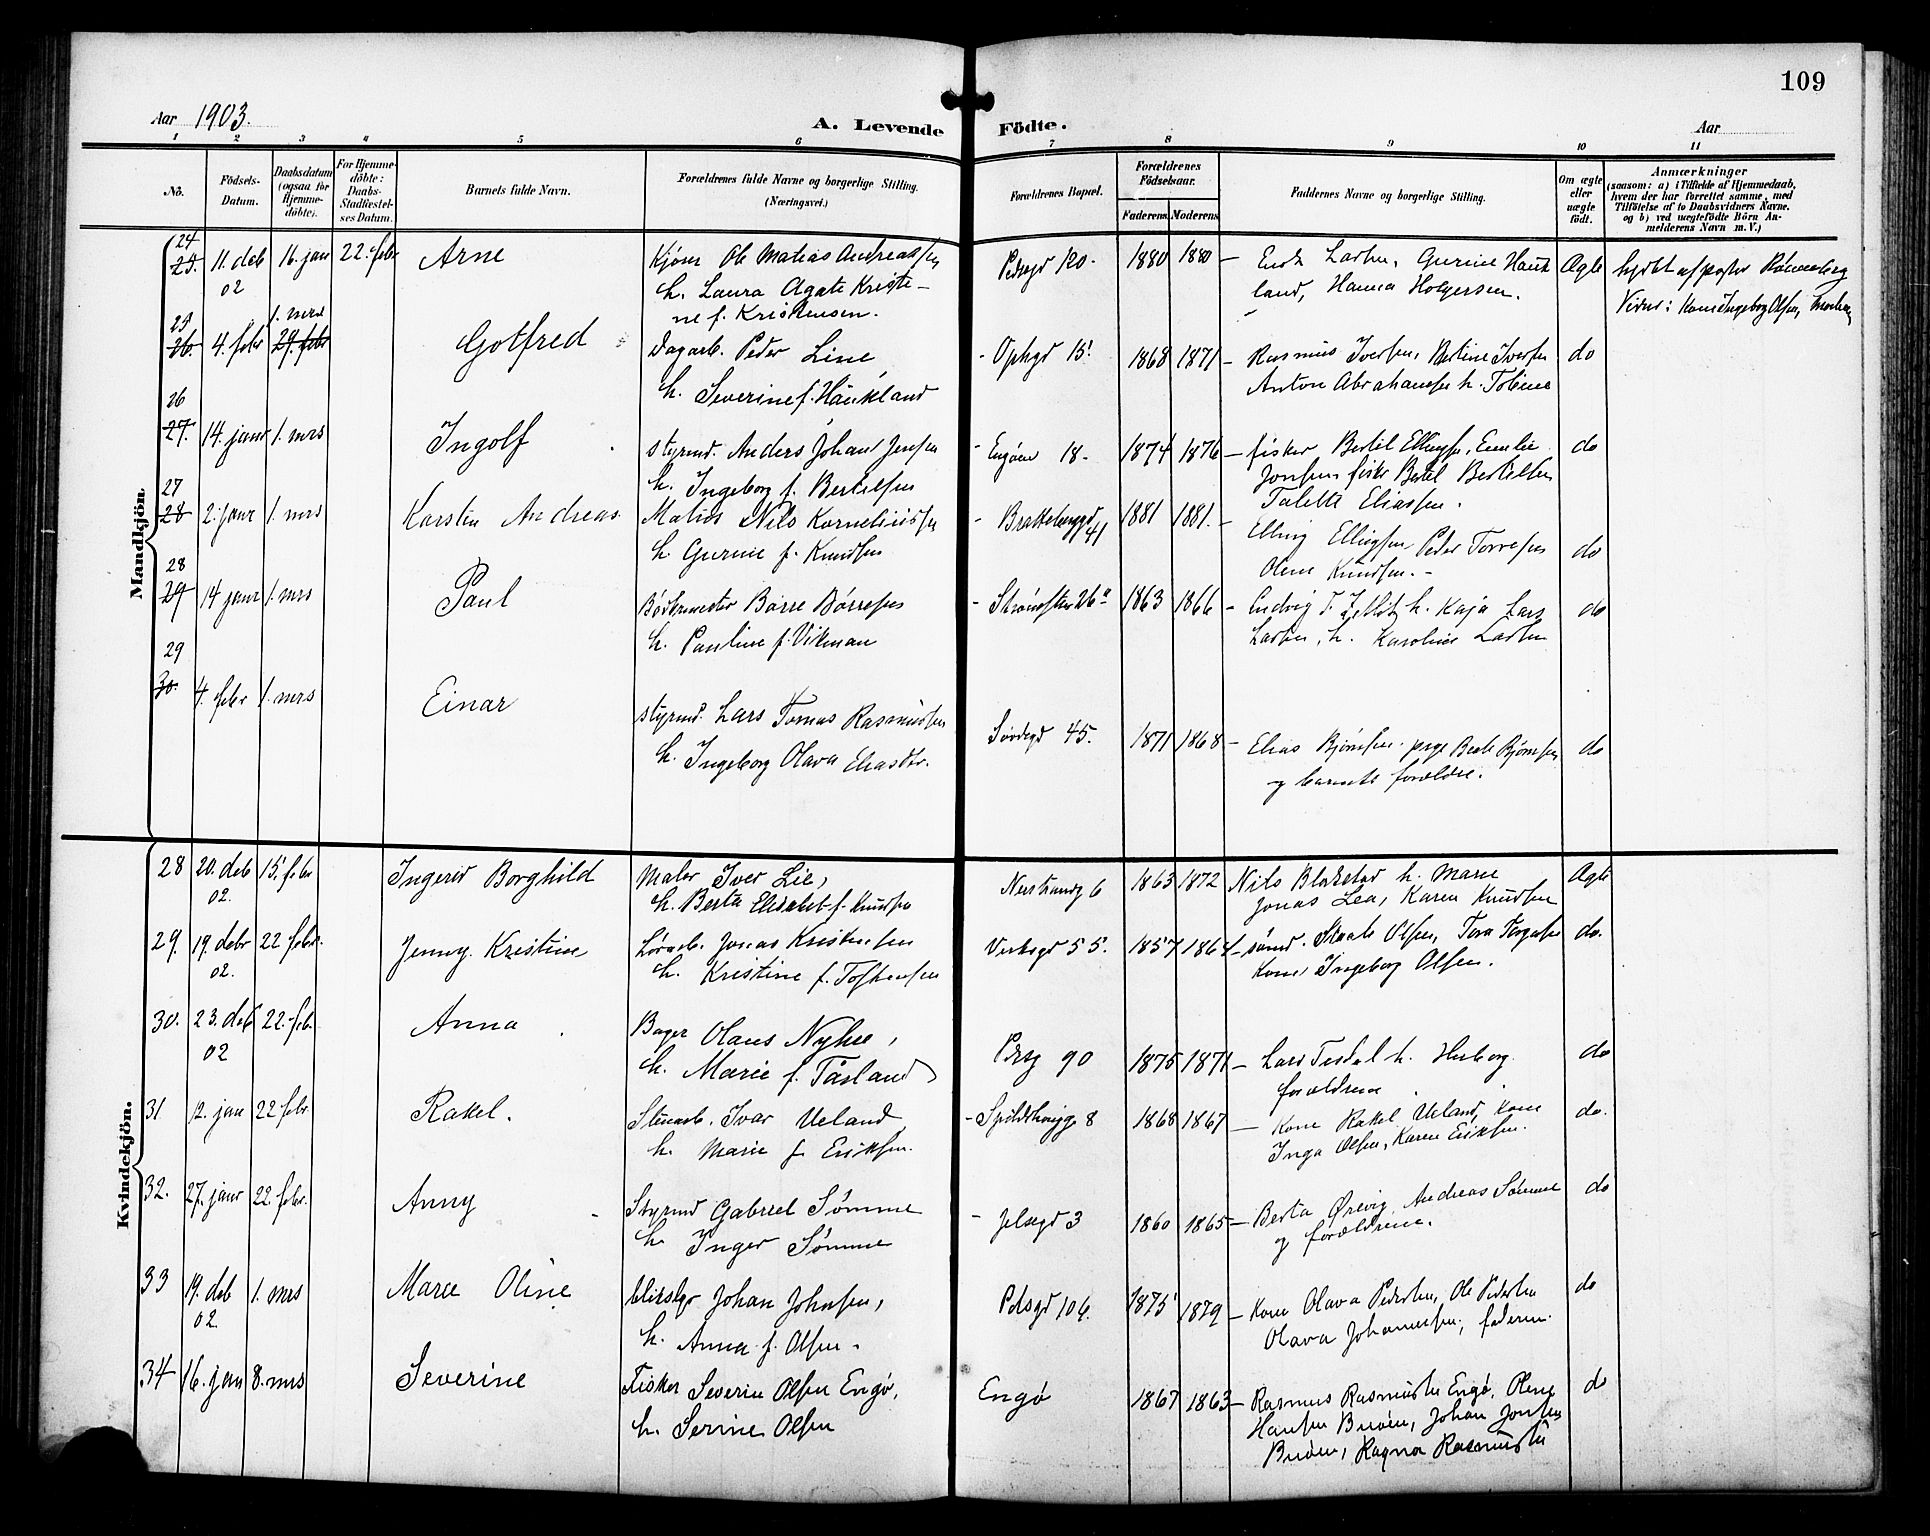 109
Aar 1903.
A. Levende Födte.
Aar
1 2 3 4 5 6 7 8 9 10 11
No.
Födsels-Datum.
Daabsdatum (ogsaa for Hjemme-döbte).
For Hjemme-döbte: Daabs-Stadfæstel-ses Datum.
Barnets fulde Navn.
Forældrenes fulde Navne og borgerlige Stilling. (Næringsvei.)
Forældrenes Bopæl.
Forældrenes Födselsaar.
Faderens. Moderens.
Faddernes Navne og borgerlige Stilling.
Om ægte eller uægte födt.
Anmærkninger
(saasom: a) i Tilfælde af Hjemmedaab,
hvem der har forrettet samme, med
Tilföielse af to Daabsvidners Navne.
og b) ved uægtefödte Börn An-
melderens Navn m. V.)
Mandkjön.
24 25. 11. deb 02 16. jan 22. febr Arne
Ole Matias Andreassen
h. Laura Agate Kristi-
ne f. Kristensen.
Pedsgd 120. 1880 1880
Larsen, Gurine Hauk
land, Hanna Holgersen.
Ægte
hjdbt af pastor
Vidner: Kone Ingeborg Olsen,
25 26. 4. febr 1. mrs 29. febr Gotfred
Dagarb. Peder Line,
h. Severine f. Haukland
Ophgd 15 1868 1871
Rasmus Iversen, Bertine Iversen
Anton Abrahamsen h. Tobine
do
26 27. 14. janr 1. mrs Ingolf
styrmd. Anders Johan Jensen
h. Ingeborg f. Bertilsen
Engöen 18. 1874 1876
fisker Bertil Ellingsen, Emilie
Jonsen, fisker Bertel Bertelsen
Talette Eliassen.
do
27 28 2. janr 1. mrs Karsten Andreas
Matros Nils Korneliussen
h. Gurine f. Knudsen
41 1881 1881.
Elling Ellingsen Peder Torresen
Olene Knudsen.
do
28 29 14 janr 1. mrs Paul
Bödkermester Börre Börresen
h. Pauline f. Vikman
Strömsten 26a 1863 1866
Ludvig T. h. Kaja Lars
Larsen, h. Karoline Larsen
do
29 30. 4. febr 1. mrs Einar
styrmd. Lars Tomas Rasmussen
h. Ingeborg Olava Eliasdtr.
45. 1871 1868
Elias Bjørnsen. pige Berte Bjørnsen
og barnets forældre.
do
Kvindekjön.
28 20. deb 02. 15. febr Ingerid Borghild
Maler Iver Lie,
h. Berta Elisabet f. Knudsen
Nerstrandg 6 1863 1872
Nils Blikstad h. Marie
Jonas Lea, Karen Knudsen
Ægte
29. 19. debr 02. 22 febr. Jenny Kristine
Jonas Kristensen
h. Kristine f. Tostensen
Verksgd 55. 1857 1864
Olsen, Tora Torgersen
Kone Ingeborg Olsen.
do.
30. 23. deb 02 22. febr. Anna
Bager Olaus Nyhus,
h. Marie f. Tåsland
Pdsg 90 1875 1871
Lars Tesdal h.
forældrene
do
31 12. jan 22 febr. Rakel.
Stenarb. Ivar Ueland
h. Marie f Eriksen.
8 1868 1867
Kone Rakel Ueland, Kone
Inga Olsen, Karen Eriksen.
do.
32. 27. janr 22. febr. Anny
Styrmd Gabriel Sømme
h. Inger Sømme
Jelsegd 3 1860 1865
Berta Ørevig, Andreas Sømme
og forældrene.
do
33 19. deb 02. 1. mrs Marie Oline
Johan Johnsen,
h. Anna f. Olsen
Pdsgd 104. 1875 1879
Kone Olava Pedersen, Ole Pedersen
Olava Johannesen, faderen.
do
34 16. jan 8. mrs Severine
Fisker Severin Olsen Engö,
h. Serine Olsen
Engö 1867 1863
Rasmus Rasmussen Engö, Olene
Hansen Buöen, Johan Jonsen
Buöen, Ragna Rasmussen
do